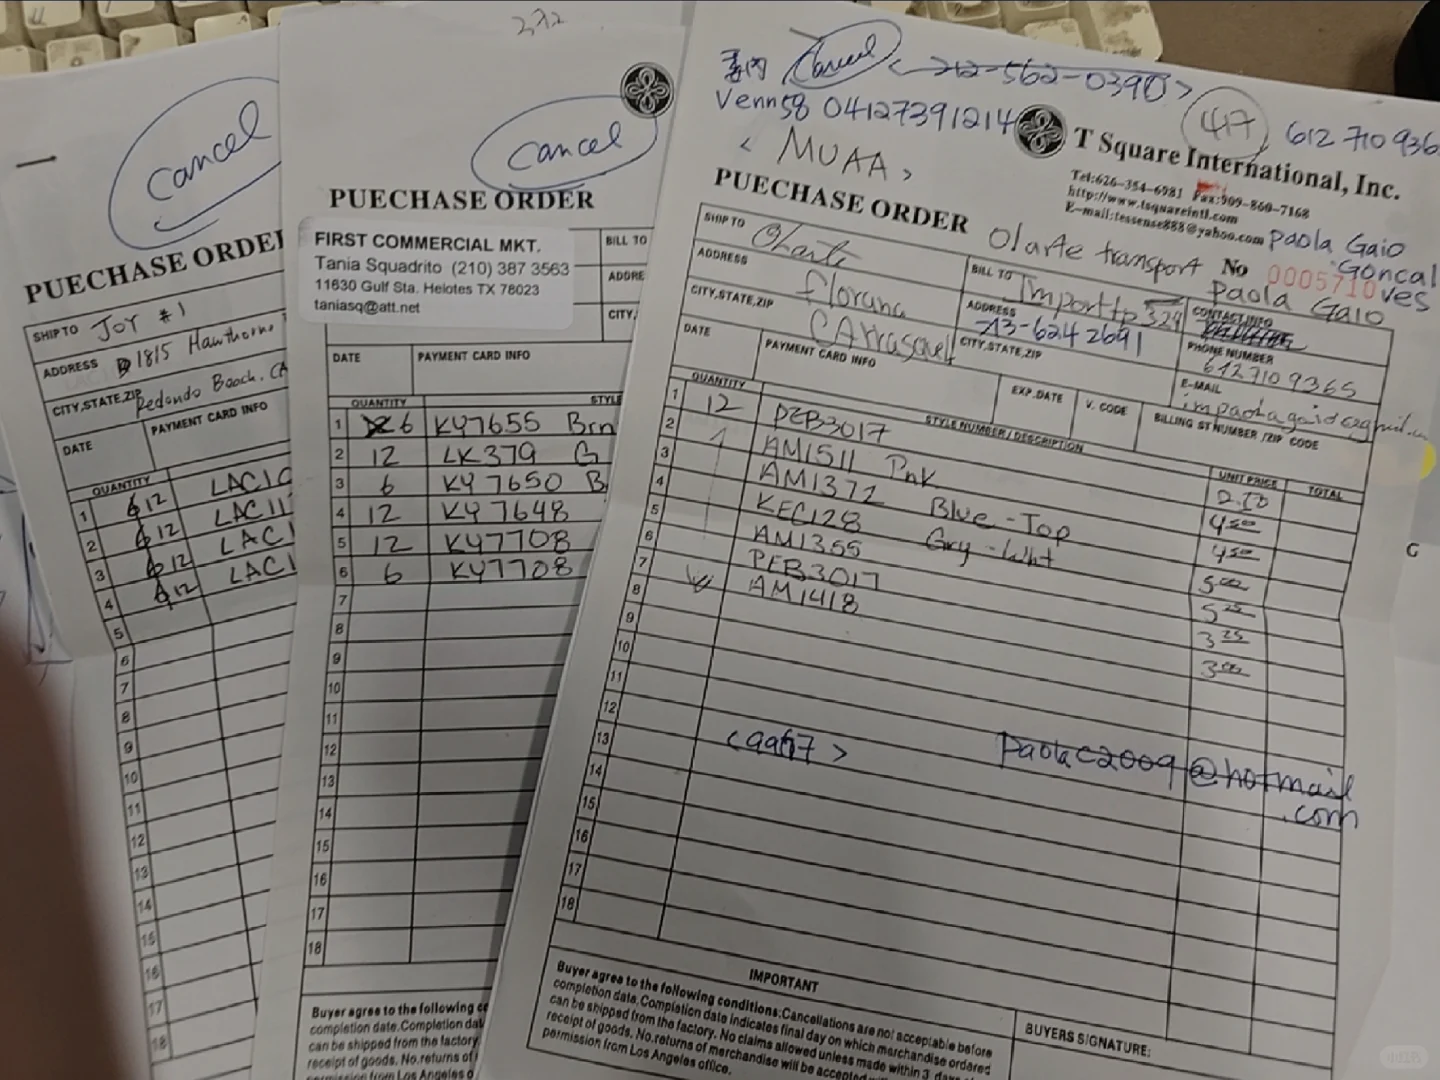 cancel
PUECHASE ORDER
SHIP TO JOY #1
ADDRESS 1815 Hawthorne
CITY,STATE,ZIP Redondo Beach. CA
DATE PAYMENT CARD INFO
QUANTITY
1 12 LAC10
2 12 LAC11
3 12 LAC1
4 12 LAC1
5
6
7
8
9
10
11
12
13
14
15
16
17
18
372
cancel
PUECHASE ORDER
FIRST COMMERCIAL MKT.
Tania Squadrito (210) 387 3563
11630 Gulf Sta. Helotes TX 78023
taniasq@att.net
BILL TO
ADDRE
CITY,
DATE PAYMENT CARD INFO
QUANTITY STYLE
1 6 KY7655 Brn
2 12 LK379 G
3 6 KY7650 B
4 12 KY7648
5 12 KY7708
6 6 KY7708
7
8
9
10
11
12
13
14
15
16
17
18
Buyer agree to the following c
completion date.Completion dat
can be shipped from the factory.
receipt of goods. No.returns of
permission from Los Angeles o
Cancel <212-562-0390>
Venn58 04127391214 417 612 710 936
< MUAA >
T Square International, Inc.
Tel:626-354-6981 Fax:909-860-7168
http://www.tsquareintl.com
E-mail:tessense888@yahoo.com
PUECHASE ORDER
Olarte transport
No 0005710
Paola Gaio
Goncalves
Paola Gaio
SHIP TO Olarte
BILL TO Importtp 329
CONTACT INFO
ADDRESS Floruna
ADDRESS 73-624 2691
PHONE NUMBER
6127109365
CITY,STATE,ZIP CArrasquel
CITY,STATE,ZIP
E-MAIL
DATE PAYMENT CARD INFO EXP.DATE V. CODE BILLING ST NUMBER /ZIP CODE
QUANTITY STYLE NUMBER / DESCRIPTION UNIT PRICE TOTAL
1 12 PEB3017 2.50
2 AM1511 Pnk 4.50
3 AM1372 Blue-Top 4.50
4 KEC128 Gry-Wht 5.00
5 AM1355 5.25
6 PEB3017 3.25
7 AM1418 3.00
8
9
10
11
12
13
14
15
16
17
18
<9967>
paolac2009@hotmail
.com
IMPORTANT
Buyer agree to the following conditions:Cancellations are not acceptable before
completion data.Complation date indicates final day on which merchandise ordered
can be shipped from the factory. No claims allowed unless made within 3 days
receipt of goods. No.returns of merchandise will be accepted
permission from Los Angeles office.
BUYERS SIGNATURE:
G